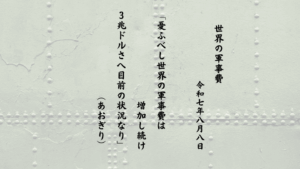 世界の軍事費
令和七年八月八日
「憂ふべし世界の軍事費は
増加し続け
３兆ドルさへ目前の状況なり」
（あおぎり）